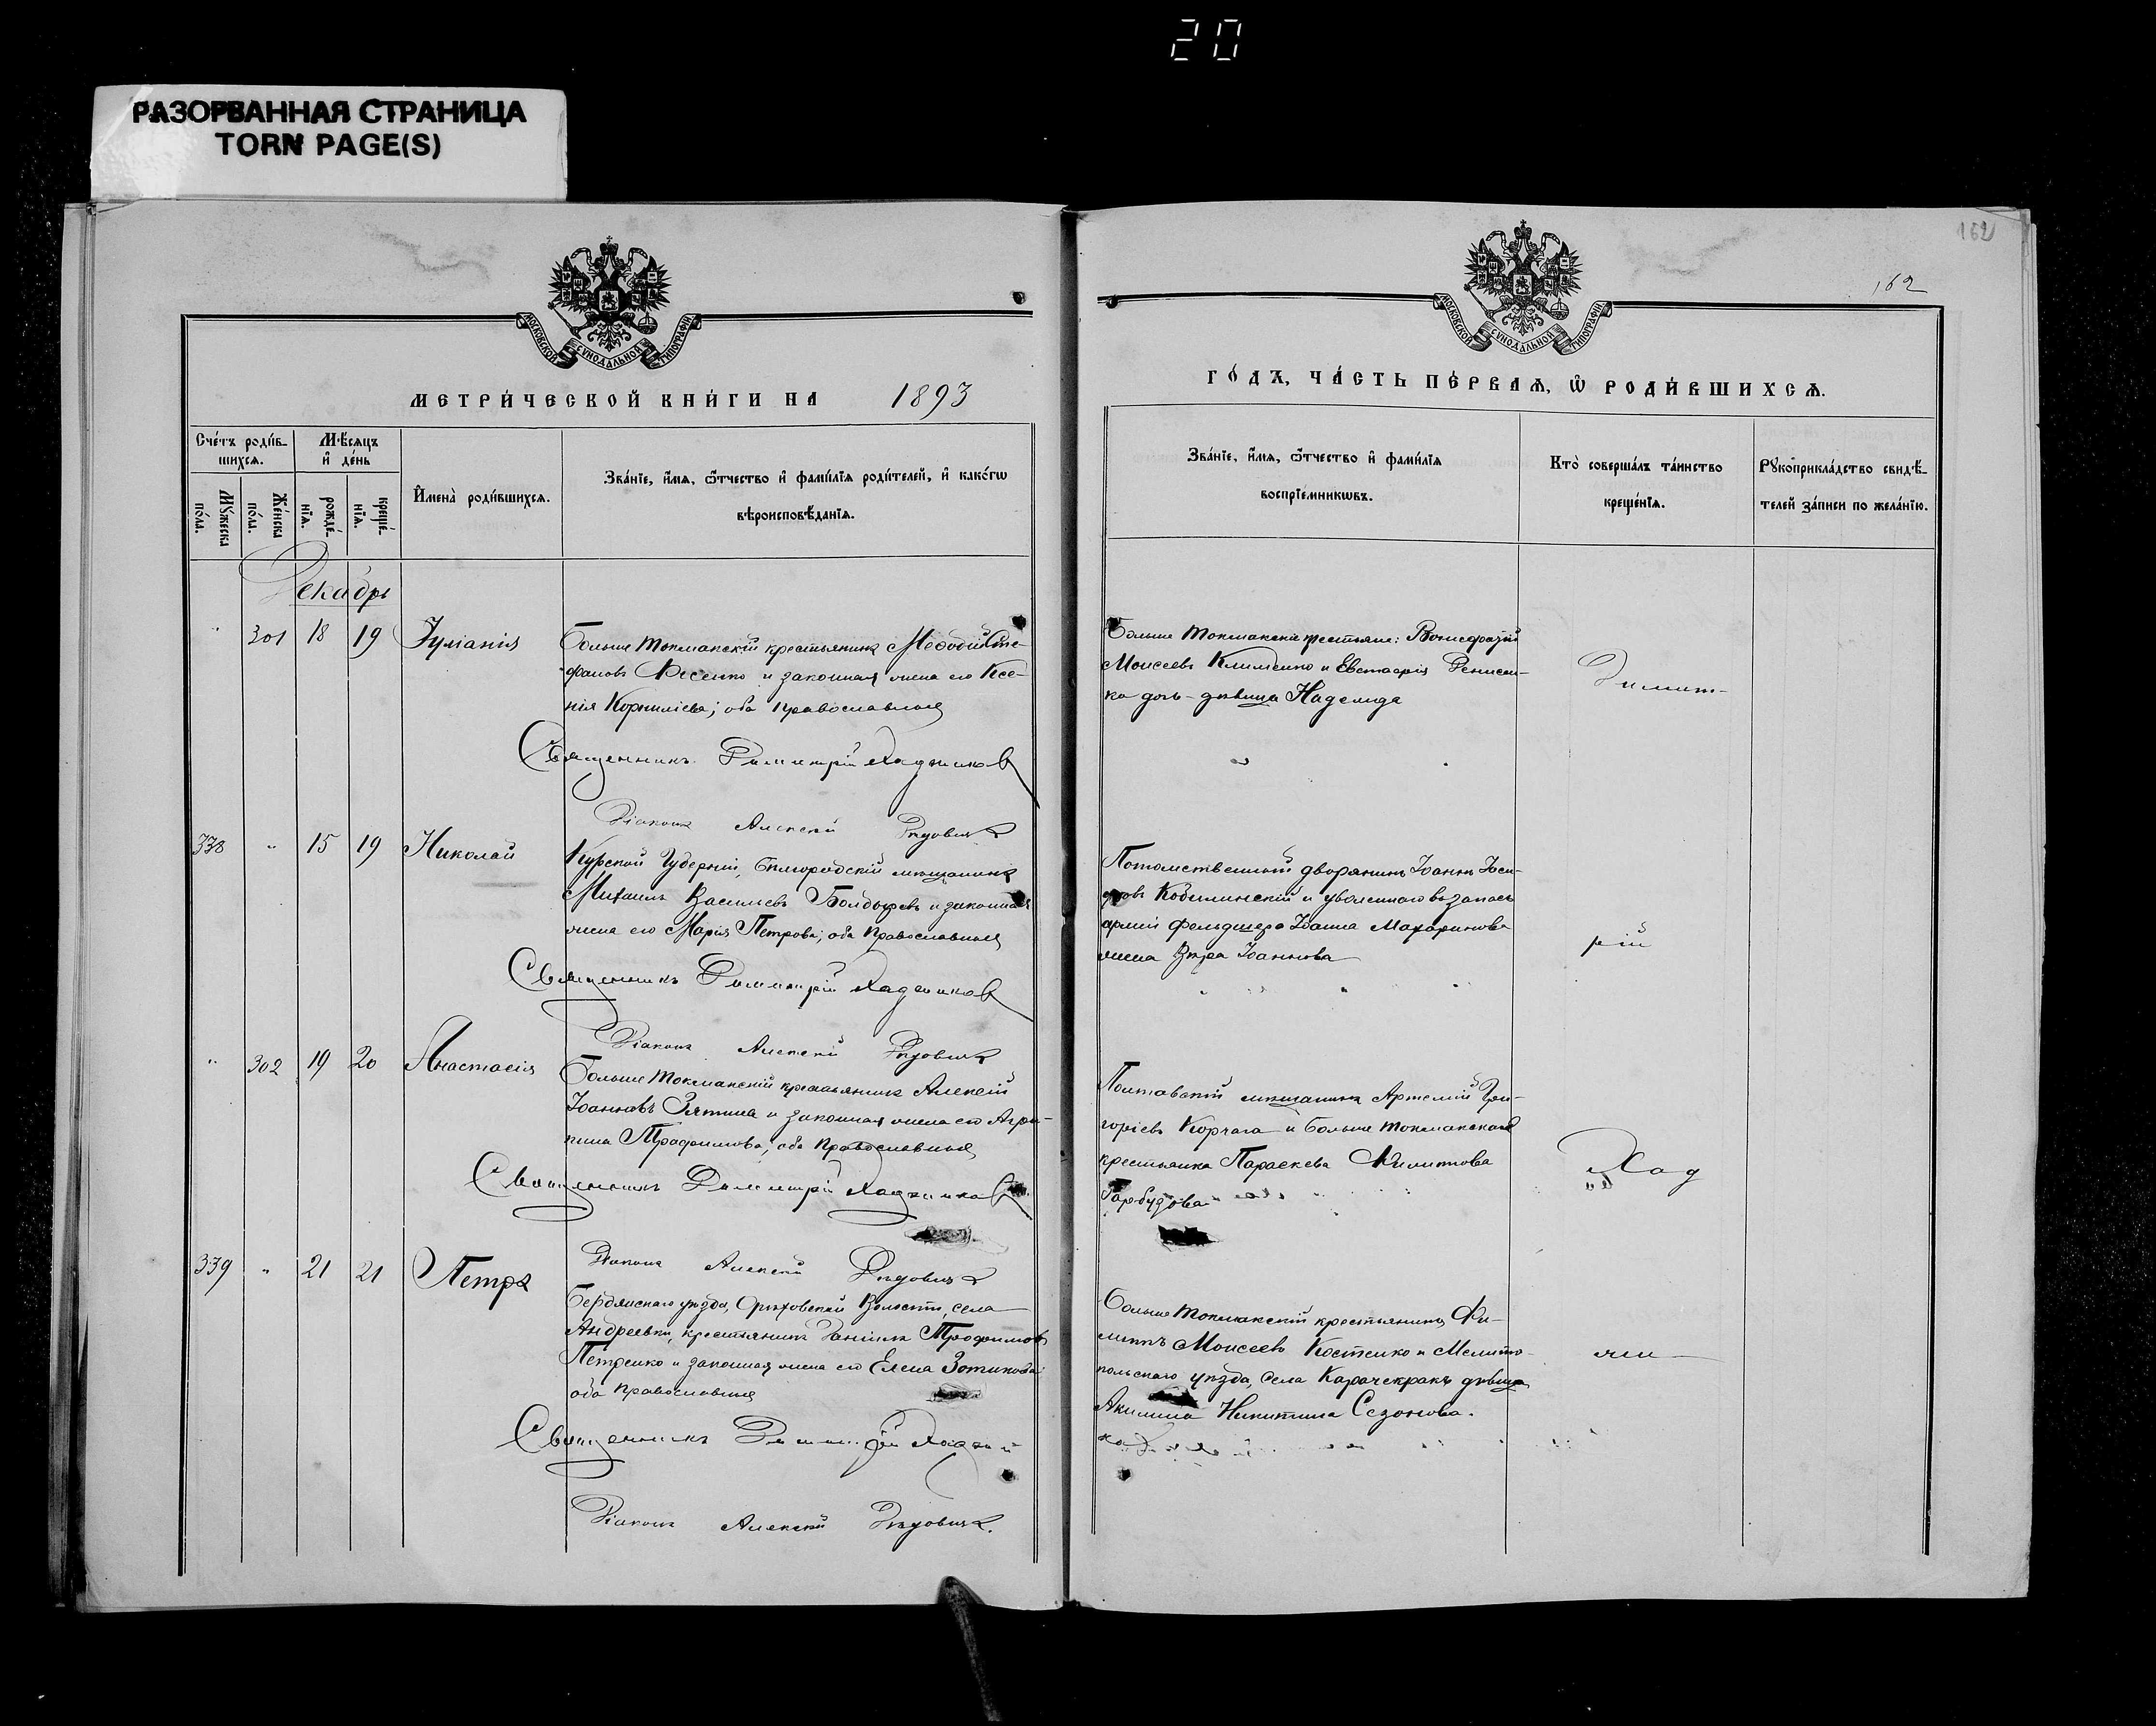 20
РАЗОРВАННАЯ СТРАНИЦА
TORN PAGE(S)
МОСКОВСКОЙ СѴНОДАЛЬНОЙ ТИПОГРАФІИ
МЕТРИ́ЧЕСКОЙ КНИ́ГИ НА 1893
Сче́тъ роди́в-
шихсѧ.
Мѣ́сѧцъ
и҆ де́нь
И҆мена̀ роди́вшихсѧ.
Зва́нїе, и҆́мѧ, ѻ҆́тчество и҆ фамилїѧ роди́телей, и҆ како́гѡ
вѣроисповѣ́данїѧ.
Мꙋ́жеска
по́ла.
Же́нска
по́ла.
рожде́-
нїѧ.
креще́-
нїѧ.
Декабрь
301 18 19 Іуліанія
Больше Токмакскій крестьянинъ Меѳодій Сте-
фановъ Фесенко и законная жена его Ксе-
нія Корниліева; оба православные
Священникъ Димитрій Хаджиновъ
Діаконъ Алексій
338 " 15 19 Николай
Курской Губерніи, Бѣлгородскій мѣщанинъ
Михаилъ Васильевъ Болдыревъ и законная
жена его Марія Петрова; оба Православные
Священникъ Димитрій Хаджиновъ
Діаконъ Алексій
" 302 19 20 Анастасія
Больше Токмакскій крестьянинъ Алексій
Іоанновъ и законная жена его Агри-
пина Трофимова; оба Православные
Священникъ Димитрій Хаджиновъ
Діаконъ Алексій
339 " 21 21 Петръ
Бердянскаго уѣзда, Орѣховской Волости, села
Андреевки, крестьянинъ Даніилъ Трофимовъ
Петренко и законная жена его Елена Зотикова
оба Православные
Священникъ
Діаконъ Алексій
162
162
МОСКОВСКОЙ СѴНОДАЛЬНОЙ ТИПОГРАФІИ
ГО́ДЪ, ЧА́СТЬ ПЕ́РВАѦ, Ѽ РОДИ́ВШИХСѦ.
Зва́нїе, и҆́мѧ, ѻ҆́тчество и҆ фамилїѧ
воспрїе́мникѡвъ.
Кто̀ соверша́лъ та́инство
креще́нїѧ.
Рꙋкоприкла́дство свидѣ́-
телей за́писи по жела́нїю.
Больше Токмакскіе крестьяне:
Моисеевъ Клименко и
дочь-дѣвица Надежда
Димит-
Потомственный дворянинъ Іоаннъ Іоси-
фовъ Кобылинскій и уволеннаго въ запасъ
арміи фельдшера Іоанна
жена Вѣра Іоаннова
рій
Полтавскій мѣщанинъ Артемій Гри-
горіевъ Корчага и Больше Токмакская
крестьянка Параскева Филиппова
Гарбузова
Хад
Больше Токмакскій крестьянинъ Фи-
липпъ Моисеевъ Костенко и Мелито-
польскаго уѣзда, села Карачекракъ дѣвица
Акилина Никитина Сезонова.